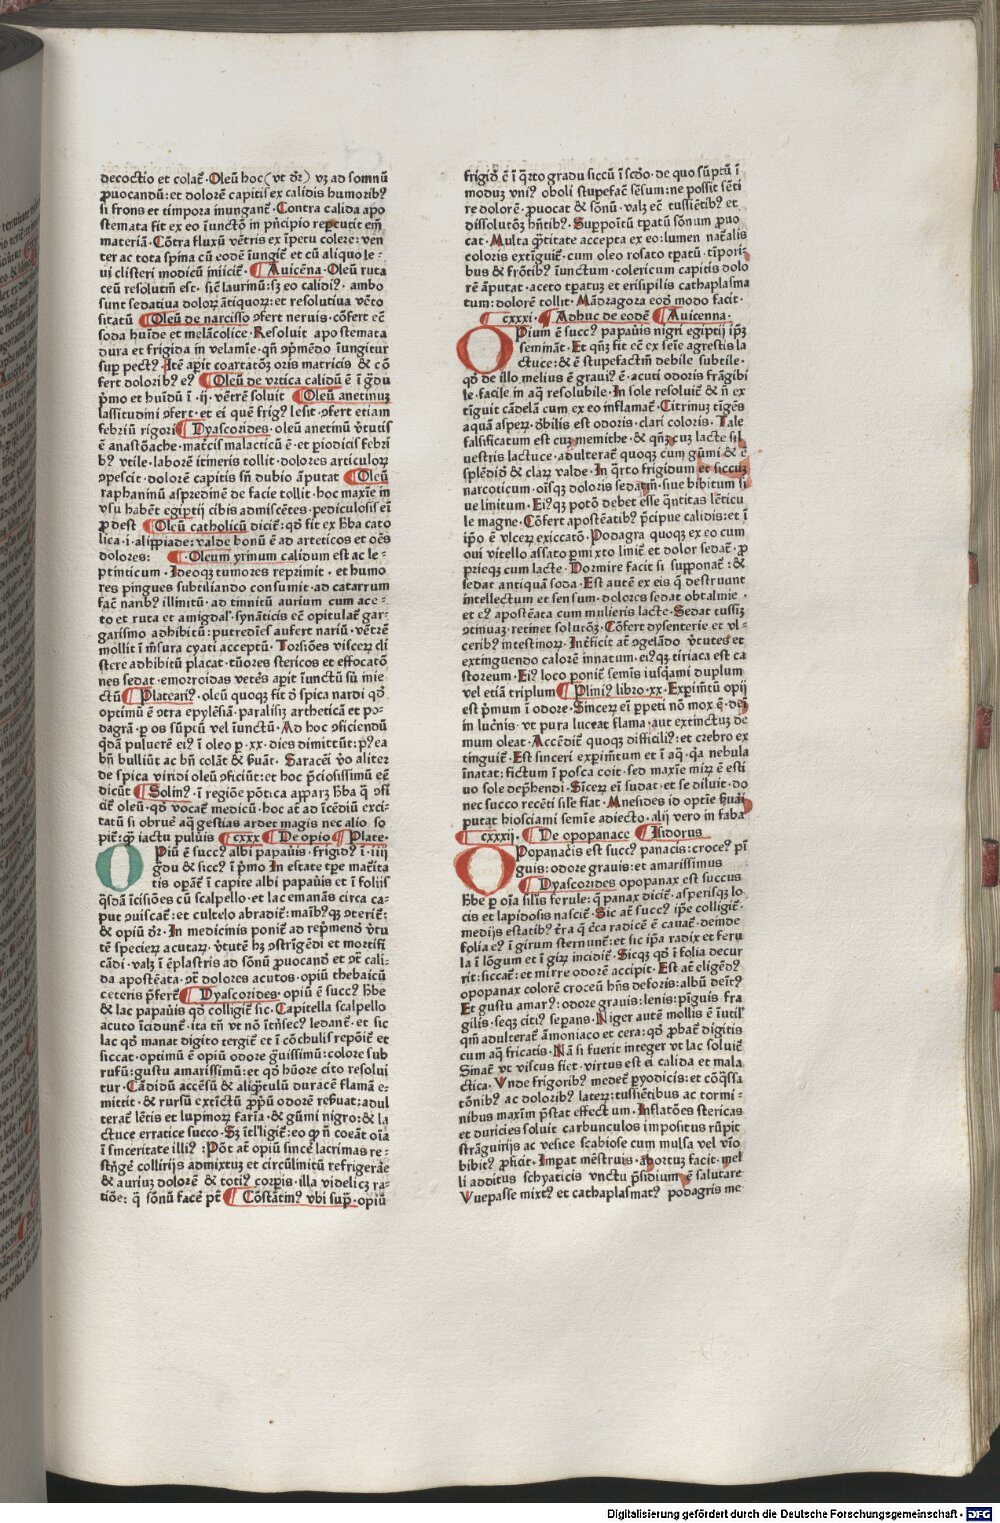 decoctio et colat̄· Oleū hoc (vt dr̄) vꝫ ad somnū
ꝓuocandū: et dolorē capitis ex calidis humoribꝰ
si frons et timpora inungant̄· Contra calida apo
stemata fit ex eo iūnctō in pn̄cipio repercutit em̄
materiā· Cōtra fluxū vētris ex īpetu colere: ven
ter ac tota spina cū eodē iungit̄ et cū aliquo le-
ui clisteri modicū iniicit̄· Auicēna· Oleū ruta
ceū resolutīm est· sic̄ laurinū: sꝫ eo calidiꝰ· ambo
sunt sedatiua doloꝝ ātiquoꝝ: et resolutiua vēto
sitatū Oleū de narcisso ꝯfert neruis· cōfert ec̄
soda hūide et melācolice· Resoluit apostemata
dura et frigida in velamīe· qn̄ ꝯpmēdo iungitur
suꝑ pectꝰ· Itē aꝑit coartatōꝫ oris matricis & cō
fert doloribꝰ eꝰ Oleū de vrtica calidū ē ī gͣdu
pͥmo et huidū ī ·ij· vētrē soluit Oleū anetinuꝫ
lassitudini ꝯfert· et ei quē frigꝰ lesit· ꝯfert etiam
febriū rigori Dyascorides· oleū anetinū v̄tutis
ē anastōache· mat̄cis malacticū ē· et ꝑiodicis febri
bꝰ vtile· laborē itineris tollit· dolores articuloꝝ
ꝯpescit· dolorē capitis sn̄ dubio āputat Oleū
raphaninū aspredinē de facie tollit· hoc maxīe in
vsu habēt egiptij cibis admiscētes· pediculosis eī
ꝓdest Oleū catholicū dicit̄: qd̄ fit ex hͥba cato
lica· i· alippiade: valde bonū ē ad arteticos et oēs
dolores: Oleum yrinum calidum est ac le-
ptinticum· Ideoqꝫ tumores reprimit· et humo
res pingues subtiliando consumit· ad catarrum
fac̄ naribꝰ illinitū· ad tinnitū aurium cum ace-
to et ruta et amigdal̄· synāticis ec̄ opitulat̄ gar-
garismo adhibitū: putredīes aufert nariū· vētrē
mollit ī m̄sura cyati acceptū· Torsiōes visceꝝ cli
stere adhibitū placat· tūores stericos et effocatō
nes sedat· emorroidas vetēs aꝑit iūnctū sū mie
ctū Platearꝰ· oleū quoqꝫ fit d̄ spica nardi qd̄
optimū ē ꝯtra epylēsiā· paralisiꝫ artheticā et po-
dagrā· ꝑ os sūptū vel iūnctū· Ad hoc ꝯficiendū
qͣdā puluerē eiꝰ ī oleo ꝑ ·xx· dies dimittūt: pꝰea
bn̄ bulliūt ac bn̄ colāt & ẜuāt· Saracēi v̄o aliter
de spica viridi oleū ꝯficiūt: et hoc p̄ciosissimū eē
dicūt Solinꝰ· ī regiōe pōtica aꝑparꝫ hͥba qͣ ꝯfi
cit̄ oleū· qd̄ vocat̄ medicū· hoc at̄ ad īcēdiū exci-
tatū si obruē aqͥ gestias ardet magis nec alio so
pit̄: qͣꝫ iactu puluis cxxx De opio Plate·
OPiū ē succꝰ albi papaūis· frigidꝰ ī· iiij
gͣdu & siccꝰ ī pͥmo In estate tꝑe mat̄ita
tis oꝑat̄ ī capite albi papaūis et ī foliis
qͥsdā īcisiōes cū scalpello· et lac emanās circa ca-
put ꝯuiscat̄: et cultelo abradit̄: maibꝰqꝫ ꝯterit̄:
& opiū dr̄· In medicinis ponit̄ ad rep̄mendō v̄tu
tē specieꝝ acutaꝝ· v̄tutē hꝫ ꝯstrīgēdi et mortifi
cādi· valꝫ ī ēplastris ad sōnū ꝓuocandō et ꝯt̄ cali-
da apostēata· ꝯt̄ dolores acutos· opiū thebaicū
ceteris p̄fert̄ Dyascorides· opiū ē succꝰ hͥbe
& lac papaūis qd̄ colligit̄ sic· Capitella scalpello
acuto īcidunt̄· ita tn̄ vt nō ītn̄secꝰ ledant̄· et sic
lac qd̄ manat digito tergit̄ et ī cōchulis repōit̄ et
siccat̄· optimū ē opiū odore gͣuissimū: colore sub
rufū: gustu amarissimū: et qd̄ hūore cito resolui
tur· Cādidū accēsū & aliqͣtulū duracē flamā e-
mittit· & rursū extīctū ꝓpͥū odorē reẜuat: adul
terat̄ lētis et lupinoꝝ farīa· & gūmi nigro: & la
ctuce erratice succo· Sꝫ ītl̄ligit̄: eo qn̄ coeāt oīa
ī sinceritate illiꝰ: Pōt at̄ opiū sincē lacrimas re-
strīgē collirijs admixtuꝫ et circūlinitū refrigerāe
& auriuꝫ dolorē & totiꝰ corꝑis· illa videlicꝫ ra-
tiōe: qͣ sōnū facē pt̄ Cōstātinꝰ vbi suꝑ· opiū
frigidꝫ ē ī qͣrto gradu siccū ī scdō· de quo sūptū ī
moduꝫ vniꝰ oboli stupefac̄ sēsum: ne possit sēti
re dolorē· ꝓuocat & sōnū· valꝫ ec̄ tussiētibꝰ et
dissolutōꝫ hn̄tibꝰ· Suppoītū tꝑatū sōnum ꝓuo
cat· Multa qͣtitate accepta ex eo: lumen nat̄alis
coloris extīguit̄· cum oleo rosato tꝑatū· tīpori-
bus & frōtibꝰ iūnctum· colericum capitis dolo
rē āputat· aceto tꝑatuꝫ et erisipilis cathaplasma
tum: dolorē tollit· Mādragora eod̄ modo facit·
cxxxi· Adhuc de eodē Auicenna·
OPium ē succꝰ papaūis nigri egiptij ip̄ꝫ
seminat̄· Et qn̄ꝫ fit ec̄ ex seīe agrestis la
ctuce: & ē stupefactīm debile subtile·
qd̄ de illo melius ē grauiꝰ ē· acuti odoris frāgibi
le· facile in aqͣ resolubile· In sole resoluit̄ & n̄ ex
tīguit cādelā cum ex eo inflamat̄· Citrinuꝫ tīgēs
aquā asperꝫ· dͣbilis est odoris· clari coloris· Tale
falsificatum est cuꝫ memithe· & qn̄ꝫ cuꝫ lacte sil
uestris lactuce· adulterat̄ quoqꝫ cum gūmi & ē
splēdidꝰ & claꝝ valde· In qͣrto frigidum et siccuꝫ
narcoticum· oīsqꝫ doloris sedatm̄· siue bibitum si
ue linitum· Eiꝰqꝫ potō debet esse qͣntitas lēticu
le magne· Cōfert apostēatibꝰ p̄cipue calidis: et ī
ip̄o ē vlceꝝ exiccatō· Podagra quoqꝫ ex eo cum
oui vitello assato ꝑmixto linit̄ et dolor sedat̄· ꝓ
prieqꝫ cum lacte· Dormire facit si supponat̄: &
sedat antiquā soda· Est autē ex eis qͥ destruunt
intellectum et sensum· dolores sedat obtalmie·
et eꝰ apostēata cum mulieris lacte· Sedat tussiꝫ
ꝯtinuaꝫ· retinet solutōꝫ· Cōfert dysenterie et vl-
ceribꝰ intestinoꝝ· Int̄ficit at̄ ꝯgelādo v̄tutes et
extinguendo calorē innatum· eiꝰqꝫ tiriaca est ca
storeum· Eiꝰ loco ponit̄ semīs iusqͥami duplum
vel etiā triplum Pliniꝰ libro·xx· Exꝑimtū opij
est pͥmum ī odore· Sinceꝝ eī ꝑpeti nō mox qͣ· deī
in lucn̄is· vt pura luceat flama· aut extinctuꝫ de
mum oleat· Accēdit̄ quoqꝫ difficiliꝰ: et crebro ex
tinguit̄· Est sinceri exꝑimtum et ī aqͣ· qͣ nebula
īnatat: fictum ī posca coit· sed maxīe miꝝ ē esti
uo sole dep̄hendi· Siceꝝ eī sudat· et se diluit· do
nec succo recēti sil̄e fiat· Mnesides id optīe ẜuāi
putat hiosciami semīe adiecto· alij vero in faba
cxxxij· De opopanace Isidorus
OPopanac̄is est succꝰ panacis: croceꝰ pī
guis: odore grauis: et amarissimus
Dyascorides opopanax est succus
hͥbe ꝑ oīa sil̄is ferule: qͣ panax dicit̄· asperisqꝫ lo
cis et lapidosis nascit̄· Sic at̄ succꝰ ip̄e colligit̄·
medijs estatibꝰ t̄ra qͣ c̄ca radicē ē cauat̄· deinde
folia eꝰ ī girum sternunt̄: et sic ip̄a radix et feru
la ī lōgum et ī giꝝ incidit̄· Sicqꝫ qd̄ ī folia decur
rit: siccat̄: et mirre odorē accipit· Est at̄ eligēdꝰ
opopanax colorē croceū hn̄s deforis: albū deīt̄ꝰ
Et gustu amarꝰ: odore grauis: lenis: pīguis fra
gilis· seqꝫ citiꝰ sepans· Niger autē mollis ē iutil̄
qm̄ adulterat̄ āmoniaco et cera: qd̄ ꝓbat̄ digitis
cum aqͣ fricatis· Nā si fuerit integer vt lac soluit̄
Sinat̄ vt viscus fiet· virtus est ei calida et mala
ctica· Vnde frigoribꝰ medet̄ ꝑyodicis: et cōqͣssa
tōnibꝰ ac doloribꝰ lateꝝ: tussiētibus ac tormi-
nibus maxim̄ p̄stat effectum· Inflatōes stericas
et duricies soluit carbunculos impositus rūpit
strāguirijs ac vesice scabiose cum mulsa vel vīo
bibitꝰ ꝓficit· Imꝑat mēstruis· abortuꝫ facit· mel
li additus schyaticis vnctu p̄sidium ē salutare
Vuepasse mixtꝰ et cathaplasmatꝰ podagris me
Digitalisierung gefördert durch die Deutsche Forschungsgemeinschaft - DFG